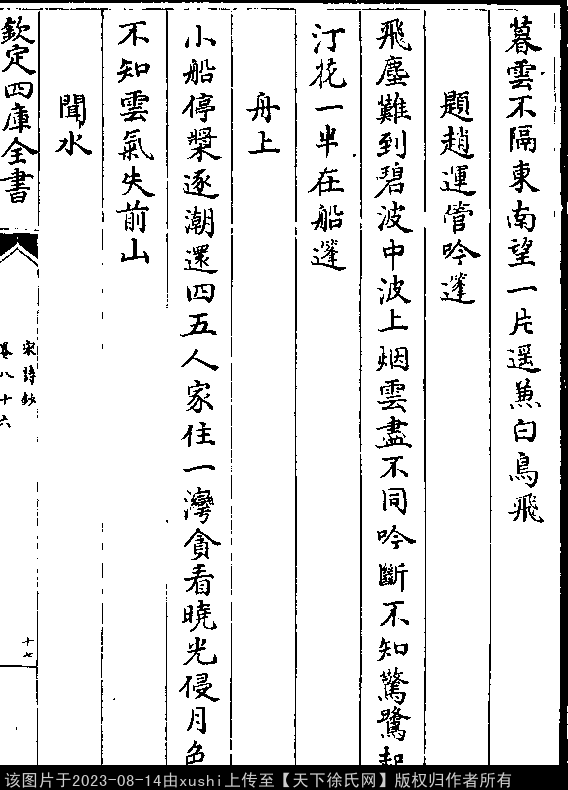 暮雲不隔東南望一片遥兼白鳥飛
題趙運管吟篷
飛塵難到碧波中波上烟雲盡不同吟斷不知驚鷺起
汀花一半在船篷
舟上
小船停槳逐潮還四五人家住一灣貪看曉光侵月色
不知雲氣失前山
聞水
欽定四庫全書
宋詩鈔
卷八十六
十七
该图片于2023-08-14由xushi上传至【天下徐氏网】版权归作者所有